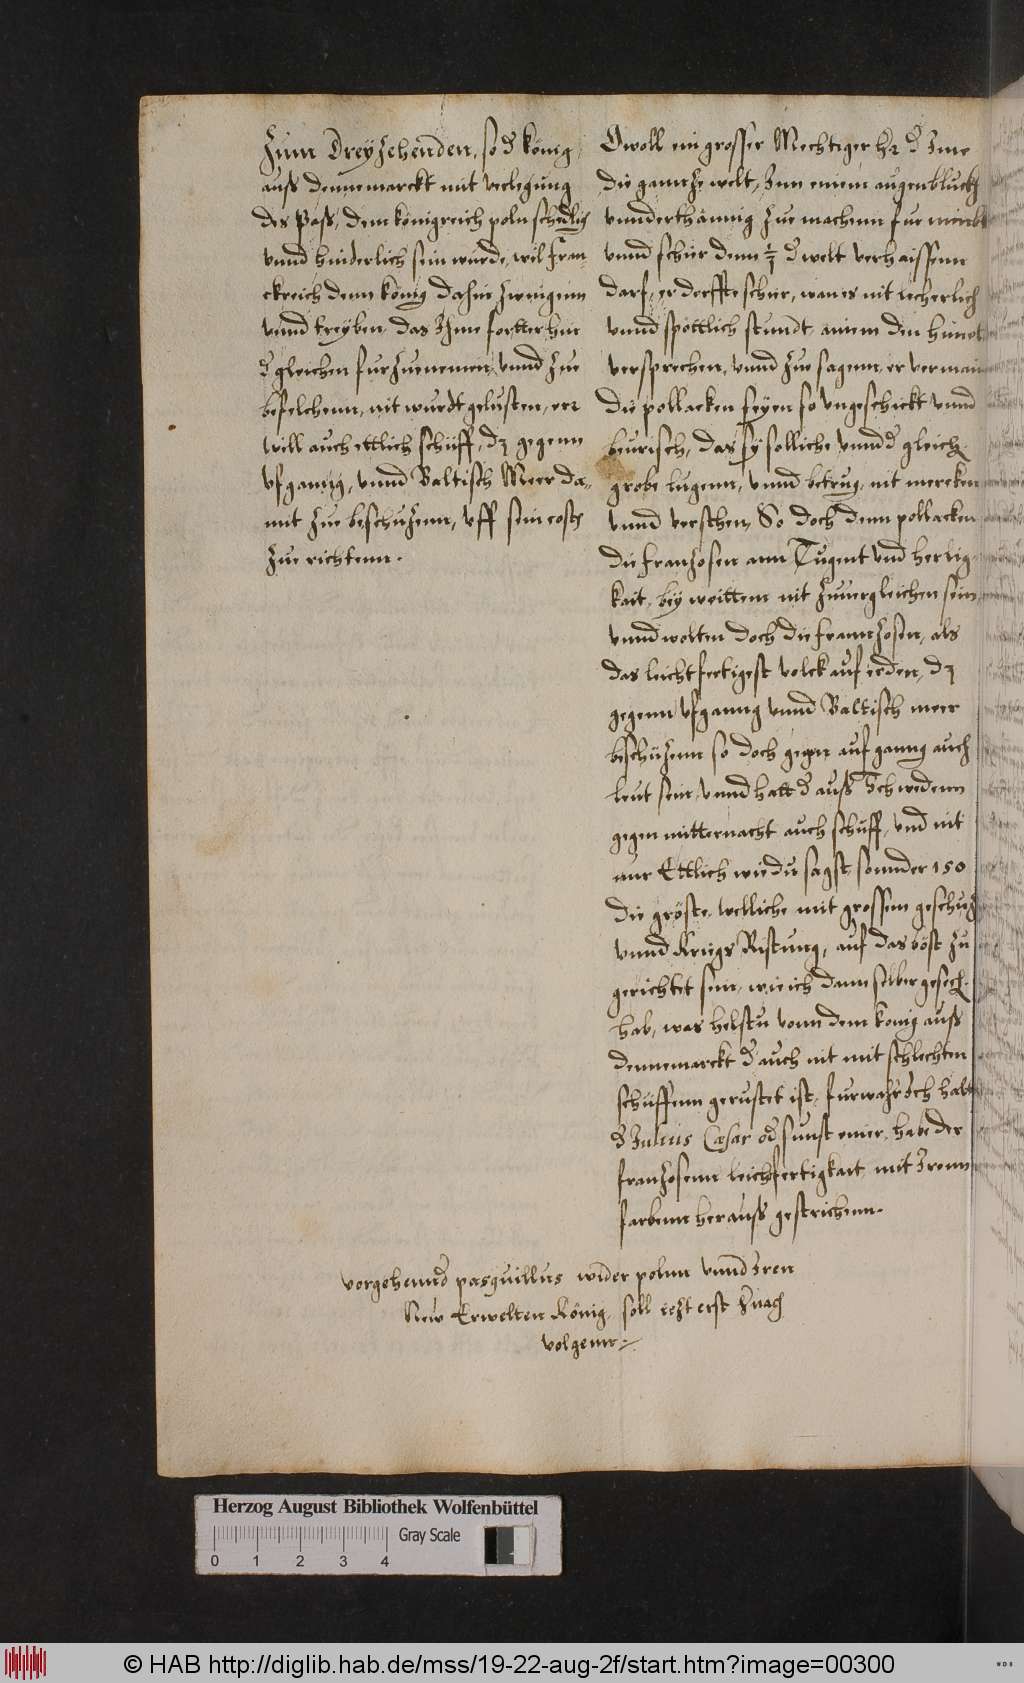 Zum Dreyzehenden, so d König
auß Dennemarckt mit verlegung
des Paß, dem Königreich poln schedlich
vnnd hinderlich sein wurde, wil Fran-
ckreich denn König dahin zwingenn
vnnd treyben, das Ihme fortterhin
d gleichen furzunemen vnnd zue
befelchenn, nit wurdt gelusten, err
will auch ettlich schiff, dz gegenn
vfganng, vnnd Baltisch Meer da-
mit zue beschuzenn, vff sein costen
zue richtenn.
O woll ein grosser Mechtiger hr d Ime
die gantze welt, Inn einem augenblickh
vnnderthännig zue machenn fur
vnnd schier denn d welt verhaissenn
darf, er dorffte schier, wan es nit lecherlich
vnnd spöttlich stundt, ainem den himel
versprechen, vnnd zue sagenn, er vermain
die pollacken seyen so vngeschickt vnnd
beurisch, das sy solliche vnnd d gleich
grobe lugenn, vnnd betrug, nit mercken
vnnd verstehen, So doch denn pollacken
die franzosen ann Tugent vnd herlig-
kait, bey weittem nit zuuergleichen sein
vnnd wolten doch die frantzosen, als
das leichtfertigest volck auf erden, dz
gegenn vfganng vnnd Baltisch meer
beschüzenn so doch gegen aufganng auch
leut sein, vnnd hatt d auß Schwedenn
gegen mitternacht auch schiff, vnd nit
nur Ettlich wie du sagst, sonnder 150
die gröste, welliche mit grossem geschuz
vnnd Kriegs Ristung, auf das böst zu
gerichtet sein, wie ich dann selber gesech.
hab, was helstu vonn dem König auß
dennemarckt d auch nit mit schlechten
schiffenn gerustet ist, furwahr Ich halt
d Julius Cæsar od sunst einer, habe der
franzosenn leichtfertigkait, mit Irenn
farbenn herauß gestrichenn.
vorgehennd pasquillus wider polnn vnnd Iren
New Erwelten König, soll iezt erst hernach
volgenn
Herzog August Bibliothek Wolfenbüttel
Gray Scale
0 1 2 3 4
© HAB http://diglib.hab.de/mss/19-22-aug-2f/start.htm?image=00300